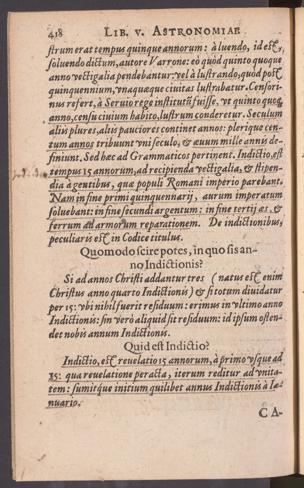 418 LIB. V. ASTRONOMIAE
strum erat tempus quinque annorum: à luendo, id est,
soluendo dictum, autore Varrone: eò quòd quinto quoque
anno vectigalia pendebantur: vel à lustrando, quòd post
quinquennium, vnaquæque ciuitas lustrabatur. Censori-
nus refert, à Seruio rege institutũ fuisse, vt quinto quoq;
anno, censu ciuium habito, lustrum conderetur. Seculum
alius plures, alius pauciores continet annos: plerique cen-
tum annos tribuunt vni seculo, & æuum mille annis de-
finiunt. Sed hæc ad Grammaticos pertinent. Indictio, est
tempus 15 annorum, ad recipienda vectigalia, & stipen-
dia à gentibus, quæ populi Romani imperio parebant.
Nam in fine primi quinquennarij, aurum imperatum
soluebant: in fine secundi argentum: in fine tertij æs, &
ferrum ad armorum reparationem. De indictionibus,
peculiaris est in Codice titulus.
Quomodo scire potes, in quo sis an-
no Indictionis?
Si ad annos Christi addantur tres (natus est enim
Christus anno quarto Indictionis) & si totum diuidatur
per 15: vbi nihil fuerit residuum: erimus in vltimo anno
Indictionis: sin verò aliquid sit residuum: id ipsum osten-
det nobis annum Indictionis.
Quid est Indictio?
Indictio, est reuelatio 15 annorum, à primo vsque ad
15: qua reuelatione peracta, iterum reditur ad vnita-
tem: sumitq́ue initium quilibet annus Indictionis à Ia-
nuario.
CA-